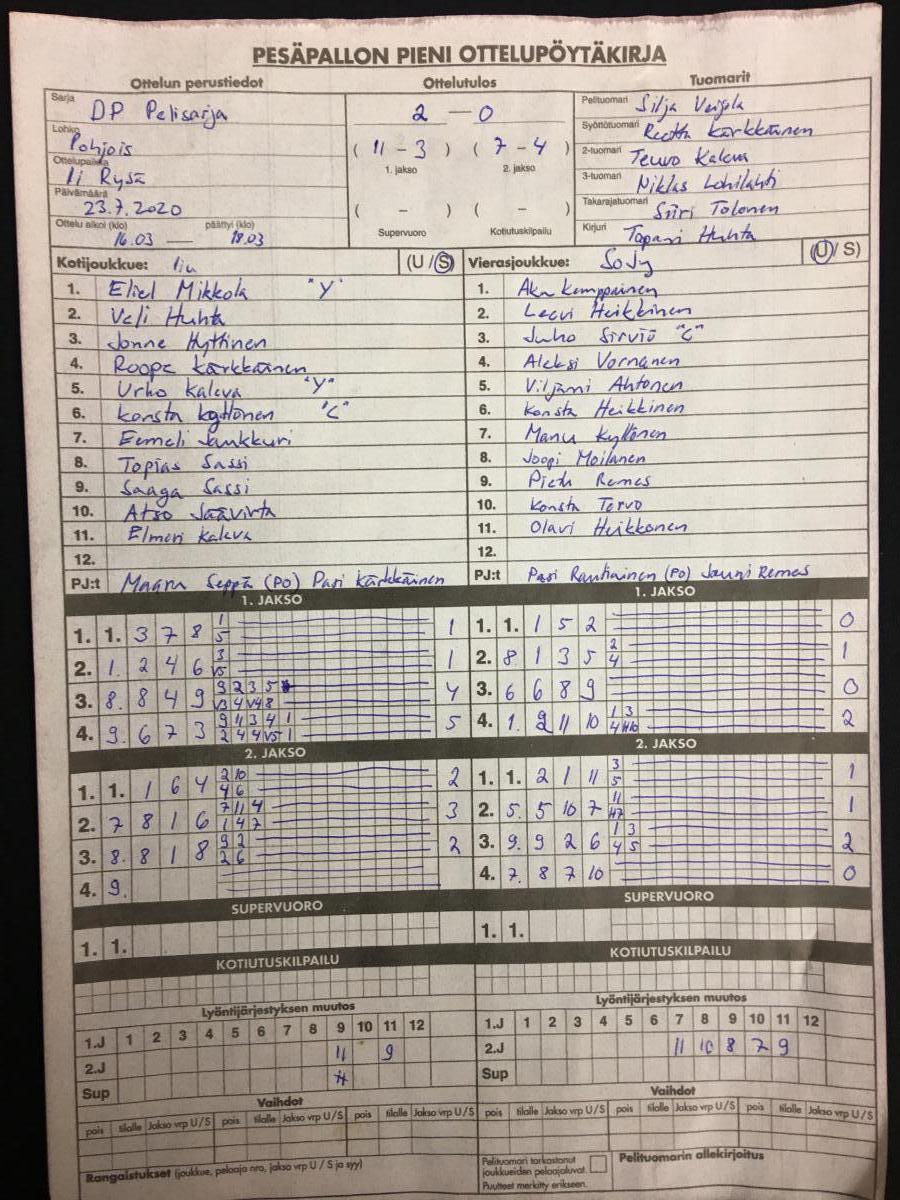 PESÄPALLON PIENI OTTELUPÖYTÄKIRJA
Ottelun perustiedot Ottelutulos Tuomarit
Sarja DP Pelisarja
Lohko Pohjois
Ottelupaikka Ii Rysä
Päivämäärä 23.7.2020
Ottelu alkoi (klo) 16.03 — päättyi (klo) 18.03
2 — 0
( 11 - 3 ) ( 7 - 4 )
1. jakso 2. jakso
( - ) ( - )
Supervuoro Kotiutuskilpailu
Pelituomari Silja Veijola
Syöttötuomari Reetta Kärkkäinen
2-tuomari Teuvo Kaleva
3-tuomari Niklas Lohilahti
Takarajatuomari Siiri Tolonen
Kirjuri Tapani Huhta
Kotijoukkue: Iiu (U/S)
1. Eliel Mikkola "Y"
2. Veli Huhta
3. Jonne Hyttinen
4. Roope Kärkkäinen
5. Urho Kaleva "Y"
6. Konsta Kyttönen "C"
7. Eemeli Jaukkuri
8. Topias Sassi
9. Saaga Sassi
10. Atso Jäävirta
11. Elmeri Kaleva
12.
PJ:t Maaru Seppä (PO) Pasi Kärkkäinen
Vierasjoukkue: SoJy (U/S)
1. Aku Kemppainen
2. Leevi Heikkinen
3. Juho Sirviö "C"
4. Aleksi Vornanen
5. Viljami Ahtonen
6. Konsta Heikkinen
7. Manu Kyllönen
8. Joopi Moilanen
9. Pietu Remes
10. Konsta Tervo
11. Olavi Heikkonen
12.
PJ:t Pasi Rautiainen (PO) Jauni Remes
1. JAKSO
1. 1. 3 7 8 1 5 1
2. 1. 2 4 6 3 V5 1
3. 8. 8 4 9 9 2 3 5 V3 4 V4 8 4
4. 9. 6 7 3 9 11 3 4 1 2 4 4 V5 1 5
2. JAKSO
1. 1. 1 6 4 2 10 4 6 2
2. 7 8 1 6 7 11 4 1 4 7 3
3. 8. 8 1 8 9 2 2 6 2
4. 9.
SUPERVUORO
1. 1.
KOTIUTUSKILPAILU
1. JAKSO
1. 1. 1 5 2 0
2. 8 1 3 5 2 4 1
3. 6 6 8 9 0
4. 1. 9 11 10 1 3 4 H10 2
2. JAKSO
1. 1. 2 1 11 3 5 1
2. 5. 5 10 7 11 H7 1
3. 9. 9 2 6 1 3 4 5 2
4. 7. 8 7 10 0
SUPERVUORO
1. 1.
KOTIUTUSKILPAILU
Lyöntijärjestyksen muutos
1.J 1 2 3 4 5 6 7 8 9 10 11 12
2.J 11 9
Sup
Vaihdot
pois tilalle Jakso vrp U/S pois tilalle Jakso vrp U/S pois tilalle Jakso vrp U/S
Rangaistukset (joukkue, pelaaja nro, jakso vrp U / S ja syy)
Lyöntijärjestyksen muutos
1.J 1 2 3 4 5 6 7 8 9 10 11 12
2.J 11 10 8 7 9
Sup
Vaihdot
pois tilalle Jakso vrp U/S pois tilalle Jakso vrp U/S pois tilalle Jakso vrp U/S
Pelituomari tarkastanut
joukkueiden pelaajaluvat.
Puutteet merkitty erikseen.
Pelituomarin allekirjoitus